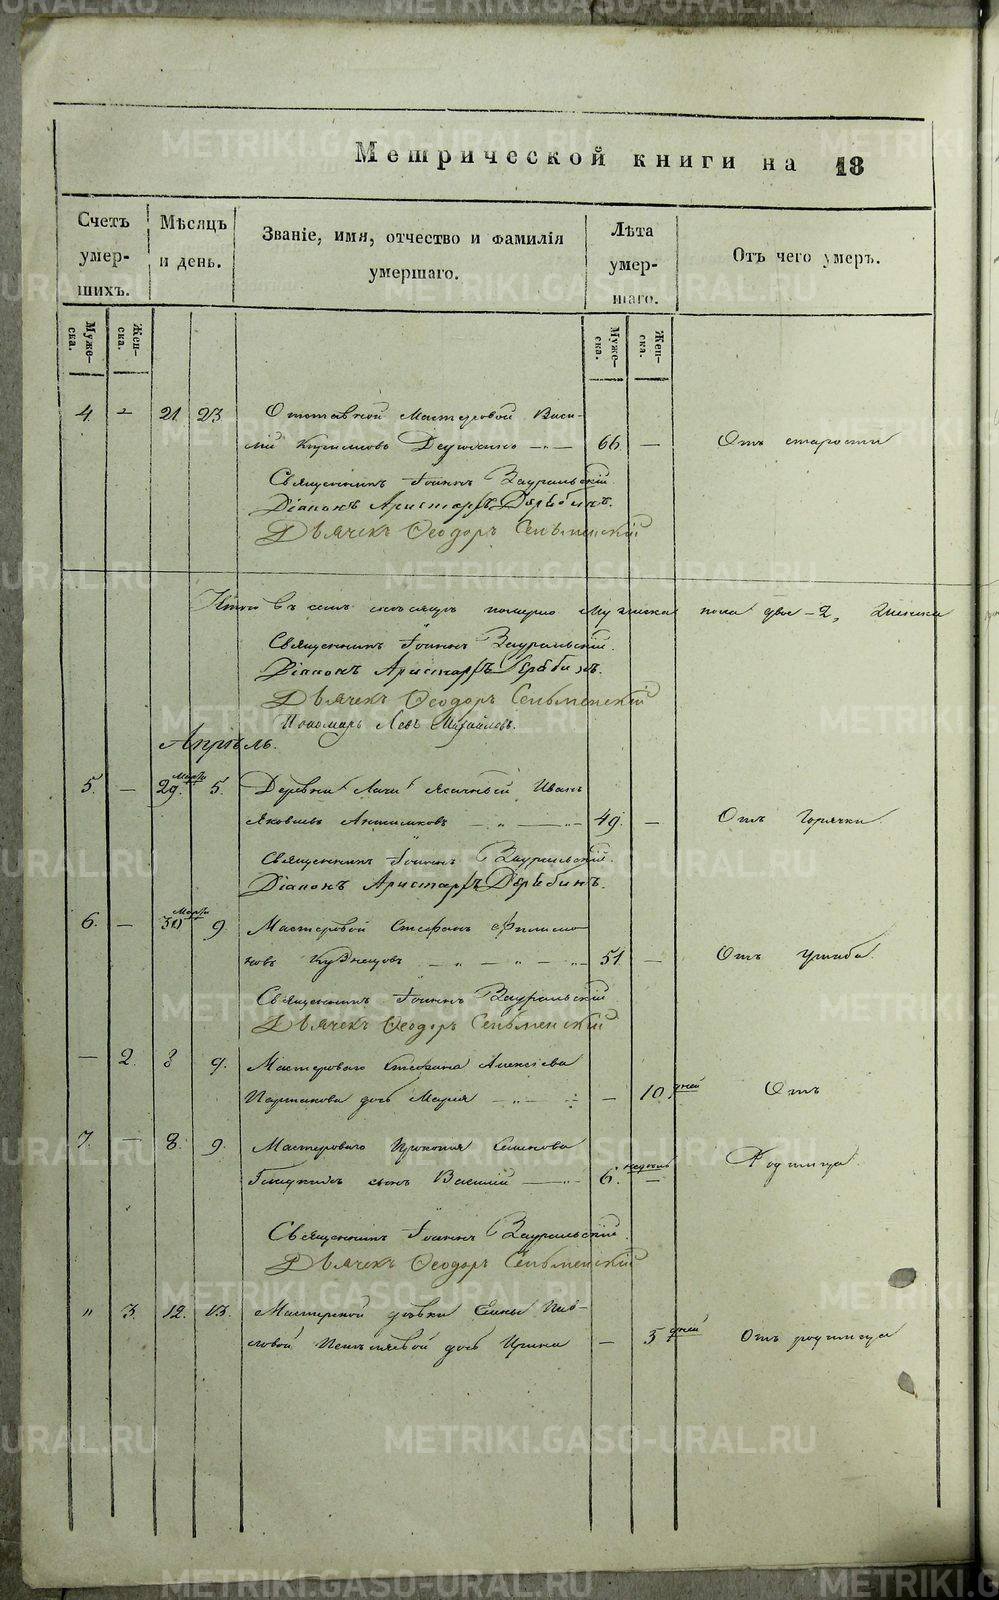 Метрической книги на 18
Счетъ умер-шихъ.
Мѣсяцъ и день.
Званіе, имя, отчество и фамилія умершаго.
Лѣта умер-шаго.
Отъ чего умеръ.
Муже-ска.
Жен-ска.
Муже-ска.
Жен-ска.
4. - 21 23 Отставной Мастеровой Васи-
лій Кириловъ 66 — Отъ старости
Священникъ Іоаннъ Зауральскій.
Діаконъ Аристархъ Дерябинъ.
Дьячекъ Ѳеодоръ Сельменскій
Итого въ семъ мѣсяцѣ померло мужеска пола двое - 2, женска
Священникъ Іоаннъ Зауральскій.
Діаконъ Аристархъ Дерябинъ.
Дьячекъ Ѳеодоръ Сельменскій
Пономарь Левъ Михайловъ.
Апрѣль.
5. — Марта 29. 5. Деревни Лачи ясачный Иванъ
Яковлевъ 49. — Отъ горячки.
Священникъ Іоаннъ Зауральскій.
Діаконъ Аристархъ Дерябинъ.
6. — Марта 30 9. Мастеровой Стефанъ Филимо-
новъ Кузнецовъ 51 — Отъ ушиба.
Священникъ Іоаннъ Зауральскій
Дьячекъ Ѳеодоръ Сельменскій
— 2. 8 9. Мастероваго Стефана Алексѣева
дочь Марія — 10 дней Отъ
7. — 8. 9. Мастероваго Прокопія Семенова
сынъ Василій 6. недель — Родимца.
Священникъ Іоаннъ Зауральскій.
Дьячекъ Ѳеодоръ Сельменскій
" 3. 12. 13. Мастерской дѣвки Елены Пав-
ловой дочь Ирина — 5 дней Отъ родимца
METRIKI.GASO-URAL.RU